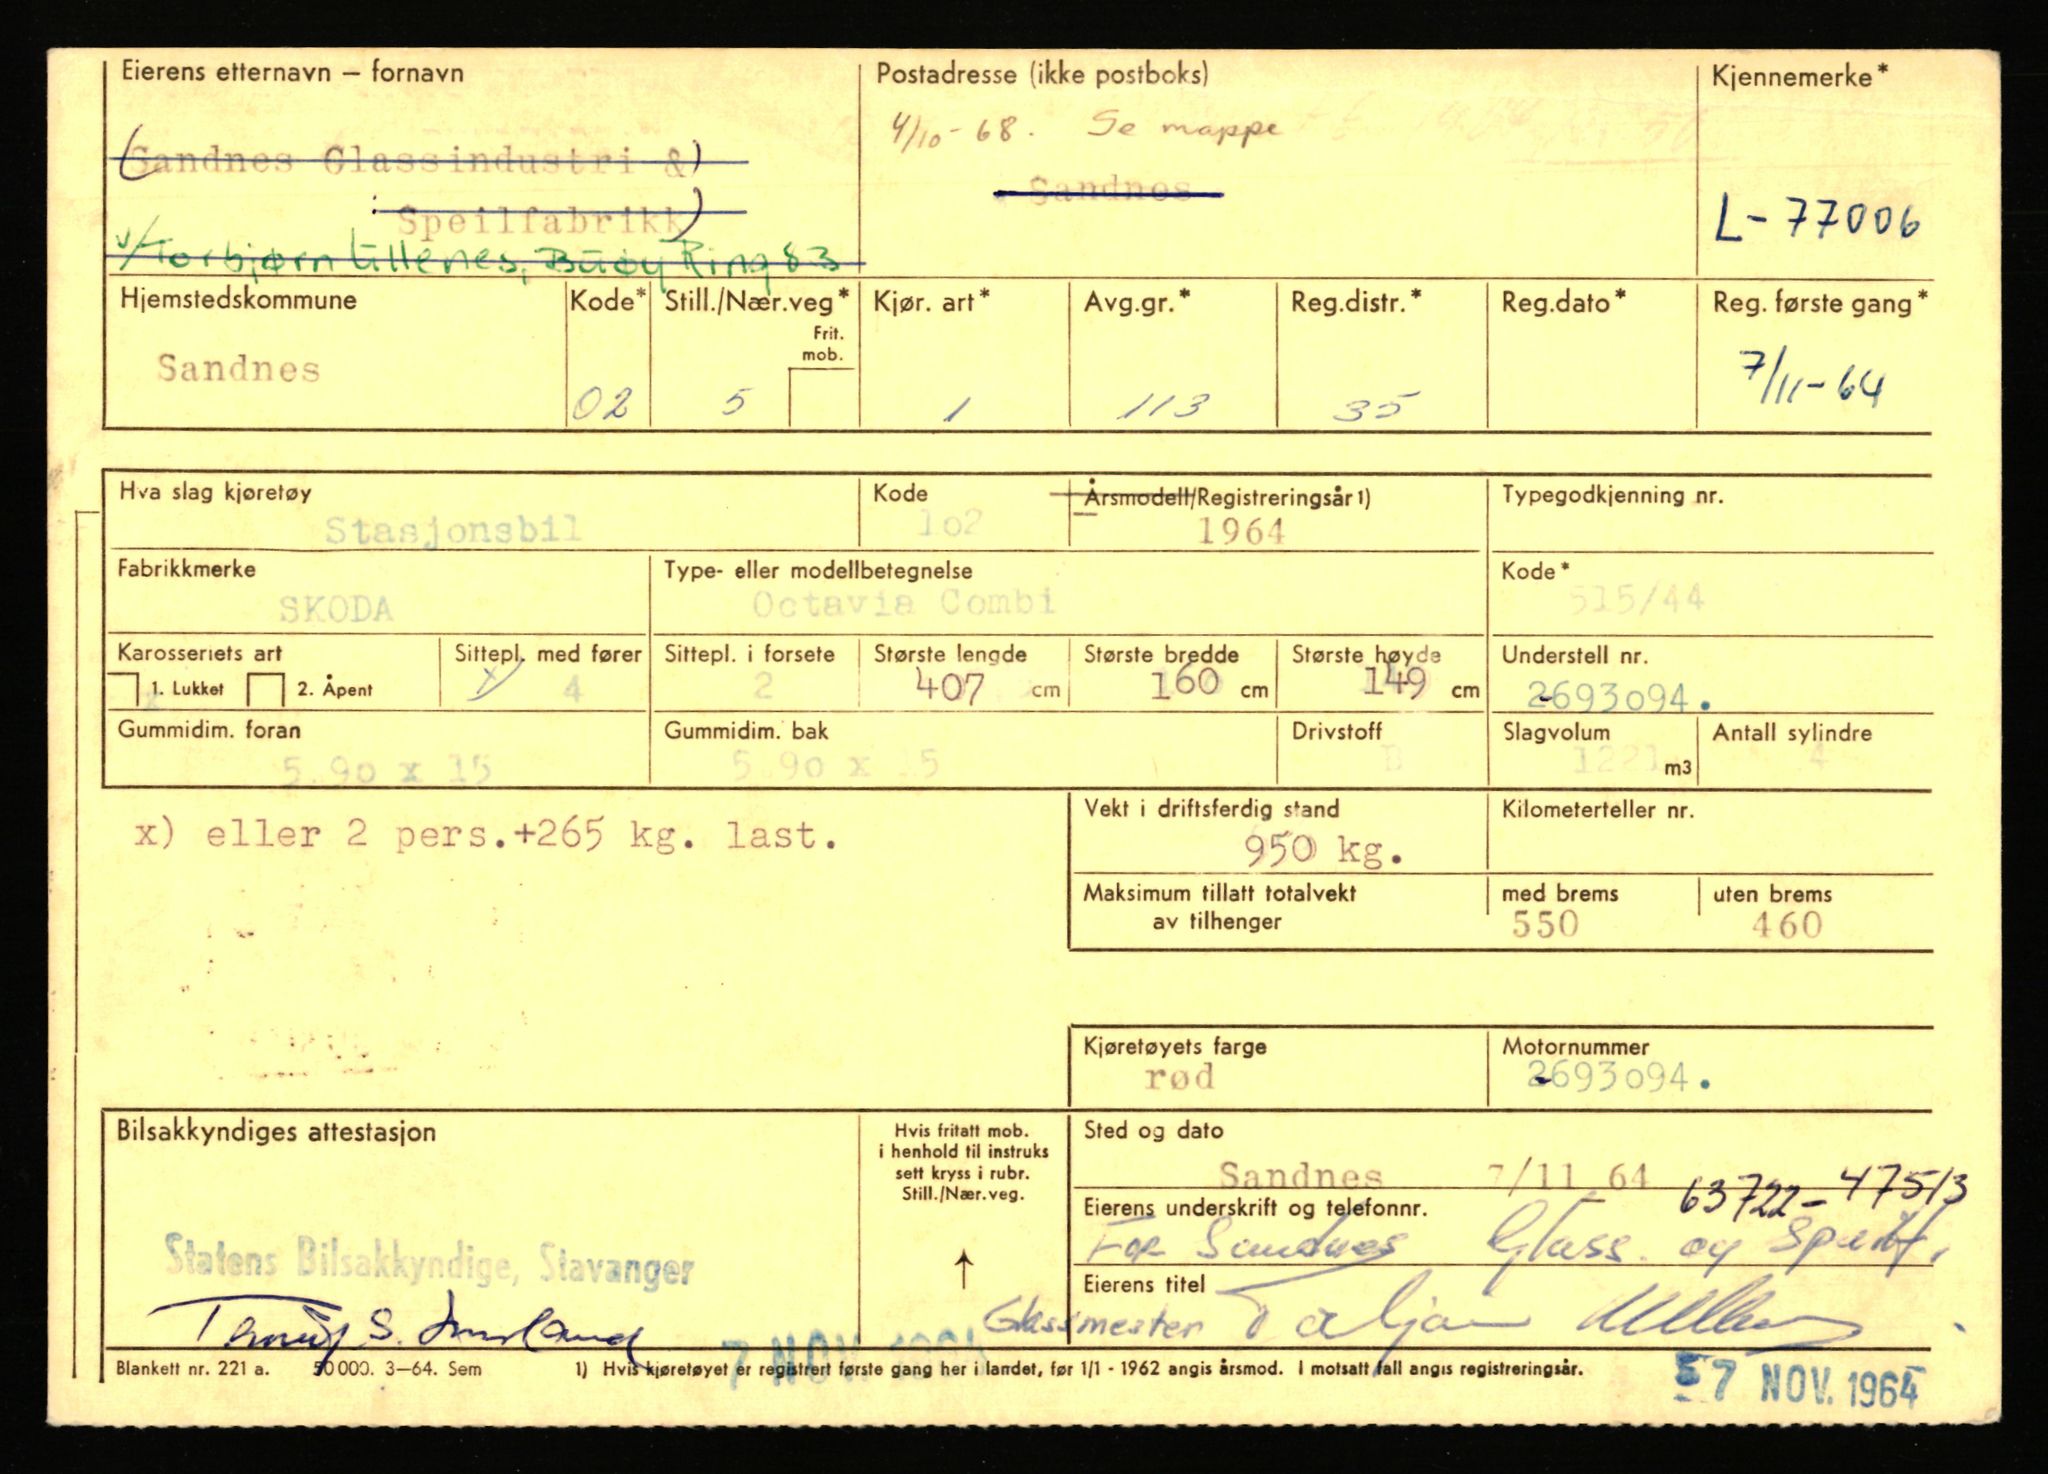 Eierens etternavn – fornavn
Postadresse (ikke postboks)
Kjennemerke*
4/10-68. Se mappe
(Sandnes Glassindustri &)
Speilfabrikk)
Sandnes
L-77006
v/Torbjørn Lillenes, Buøy Ring 83
Hjemstedskommune
Kode*
Still./Nær.veg*
Kjør. art*
Avg.gr.*
Reg.distr.*
Reg.dato*
Reg. første gang*
Frit. mob.
Sandnes
02
5
1
113
35
7/11-64
Hva slag kjøretøy
Kode
Årsmodell/Registreringsår 1)
Typegodkjenning nr.
Stasjonsbil
1o2
1964
Fabrikkmerke
Type- eller modellbetegnelse
Kode*
SKODA
Octavia Combi
515/44
Karosseriets art
Sittepl. med fører
Sittepl. i forsete
Største lengde
Største bredde
Største høyde
Understell nr.
x 1. Lukket 2. Åpent
x) 4
2
407 cm
160 cm
149 cm
2693o94.
Gummidim. foran
Gummidim. bak
Drivstoff
Slagvolum
Antall sylindre
5.90 x 15
5.90 x 15
B
1221 m3
4
x) eller 2 pers.+265 kg. last.
Vekt i driftsferdig stand
Kilometerteller nr.
950 kg.
Maksimum tillatt totalvekt av tilhenger
med brems
uten brems
550
460
Kjøretøyets farge
Motornummer
rød
2693o94.
Bilsakkyndiges attestasjon
Hvis fritatt mob.
i henhold til instruks
sett kryss i rubr.
Still./Nær.veg.
Sted og dato
Sandnes 7/11 64
63722-47513
Eierens underskrift og telefonnr.
For Sandnes Glass. og Speilf.
Statens Bilsakkyndige, Stavanger
Eierens titel
Glassmester
7 NOV. 1964
Blankett nr. 221 a. 50 000. 3–64. Sem
1) Hvis kjøretøyet er registrert første gang her i landet, før 1/1 - 1962 angis årsmod. I motsatt fall angis registreringsår.
7 NOV. 1964